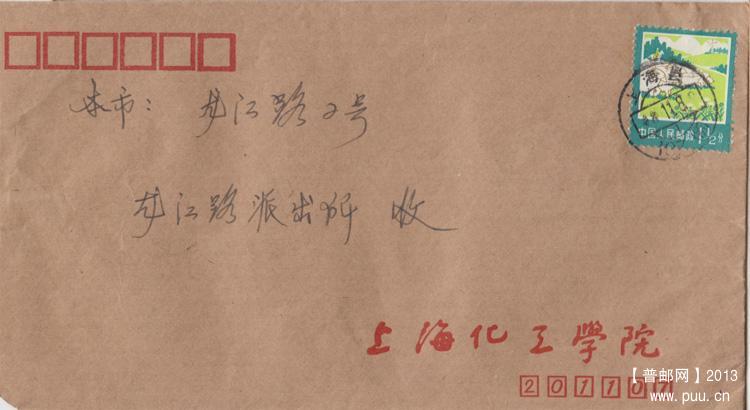 本市: 龙江路2号
龙江路派出所 收
中国人民邮政 1½分
上海
11.8
上海化工學院
201107
【普邮网】2013
www.puu.cn